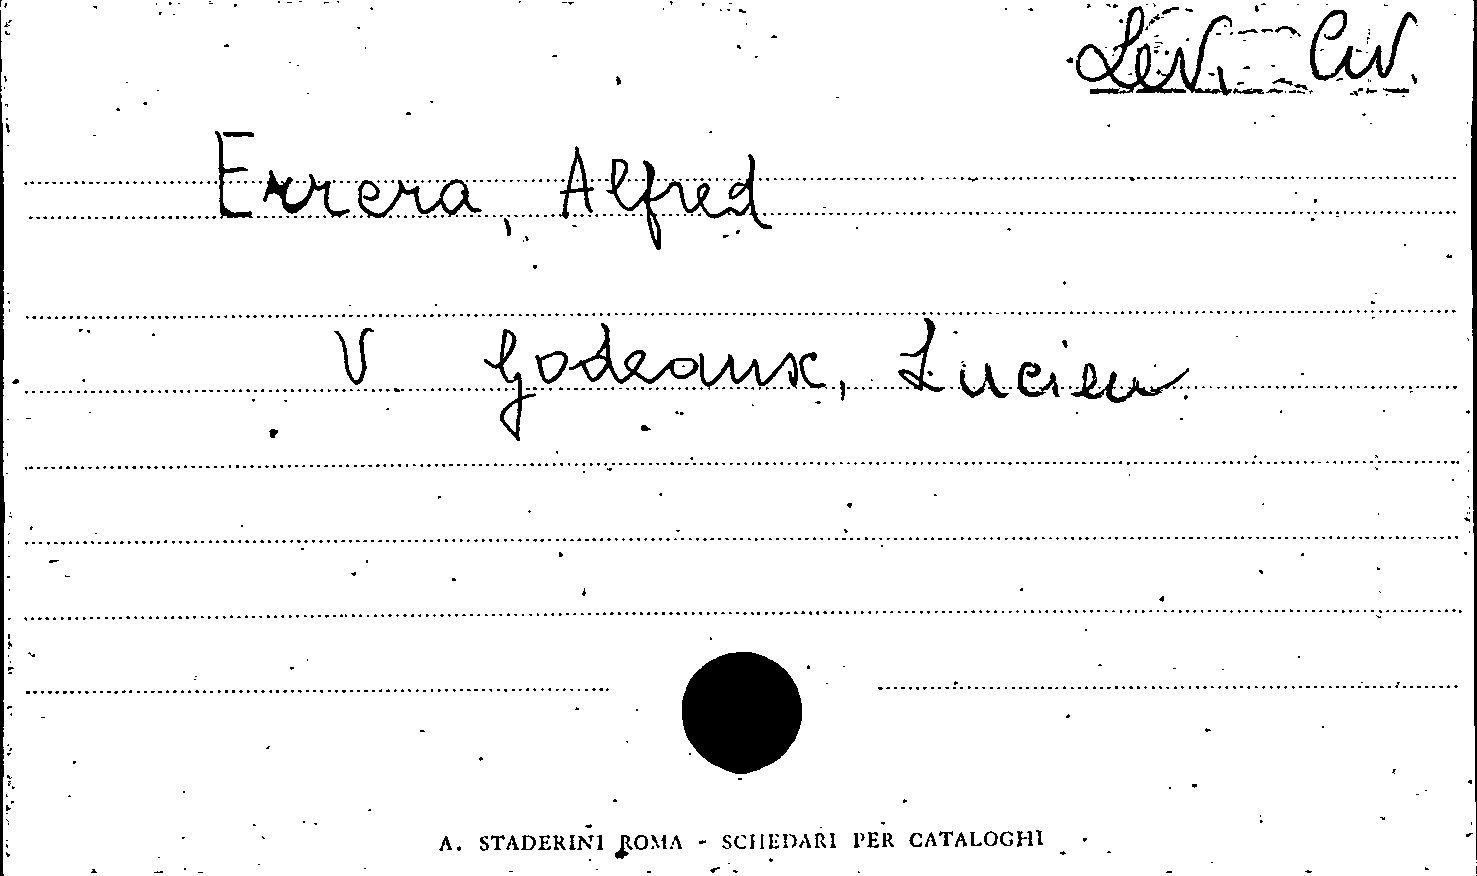 Lev. Civ.
Errera, Alfred
V Godeaux, Lucien
A. STADERINI ROMA - SCHEDARI PER CATALOGHI